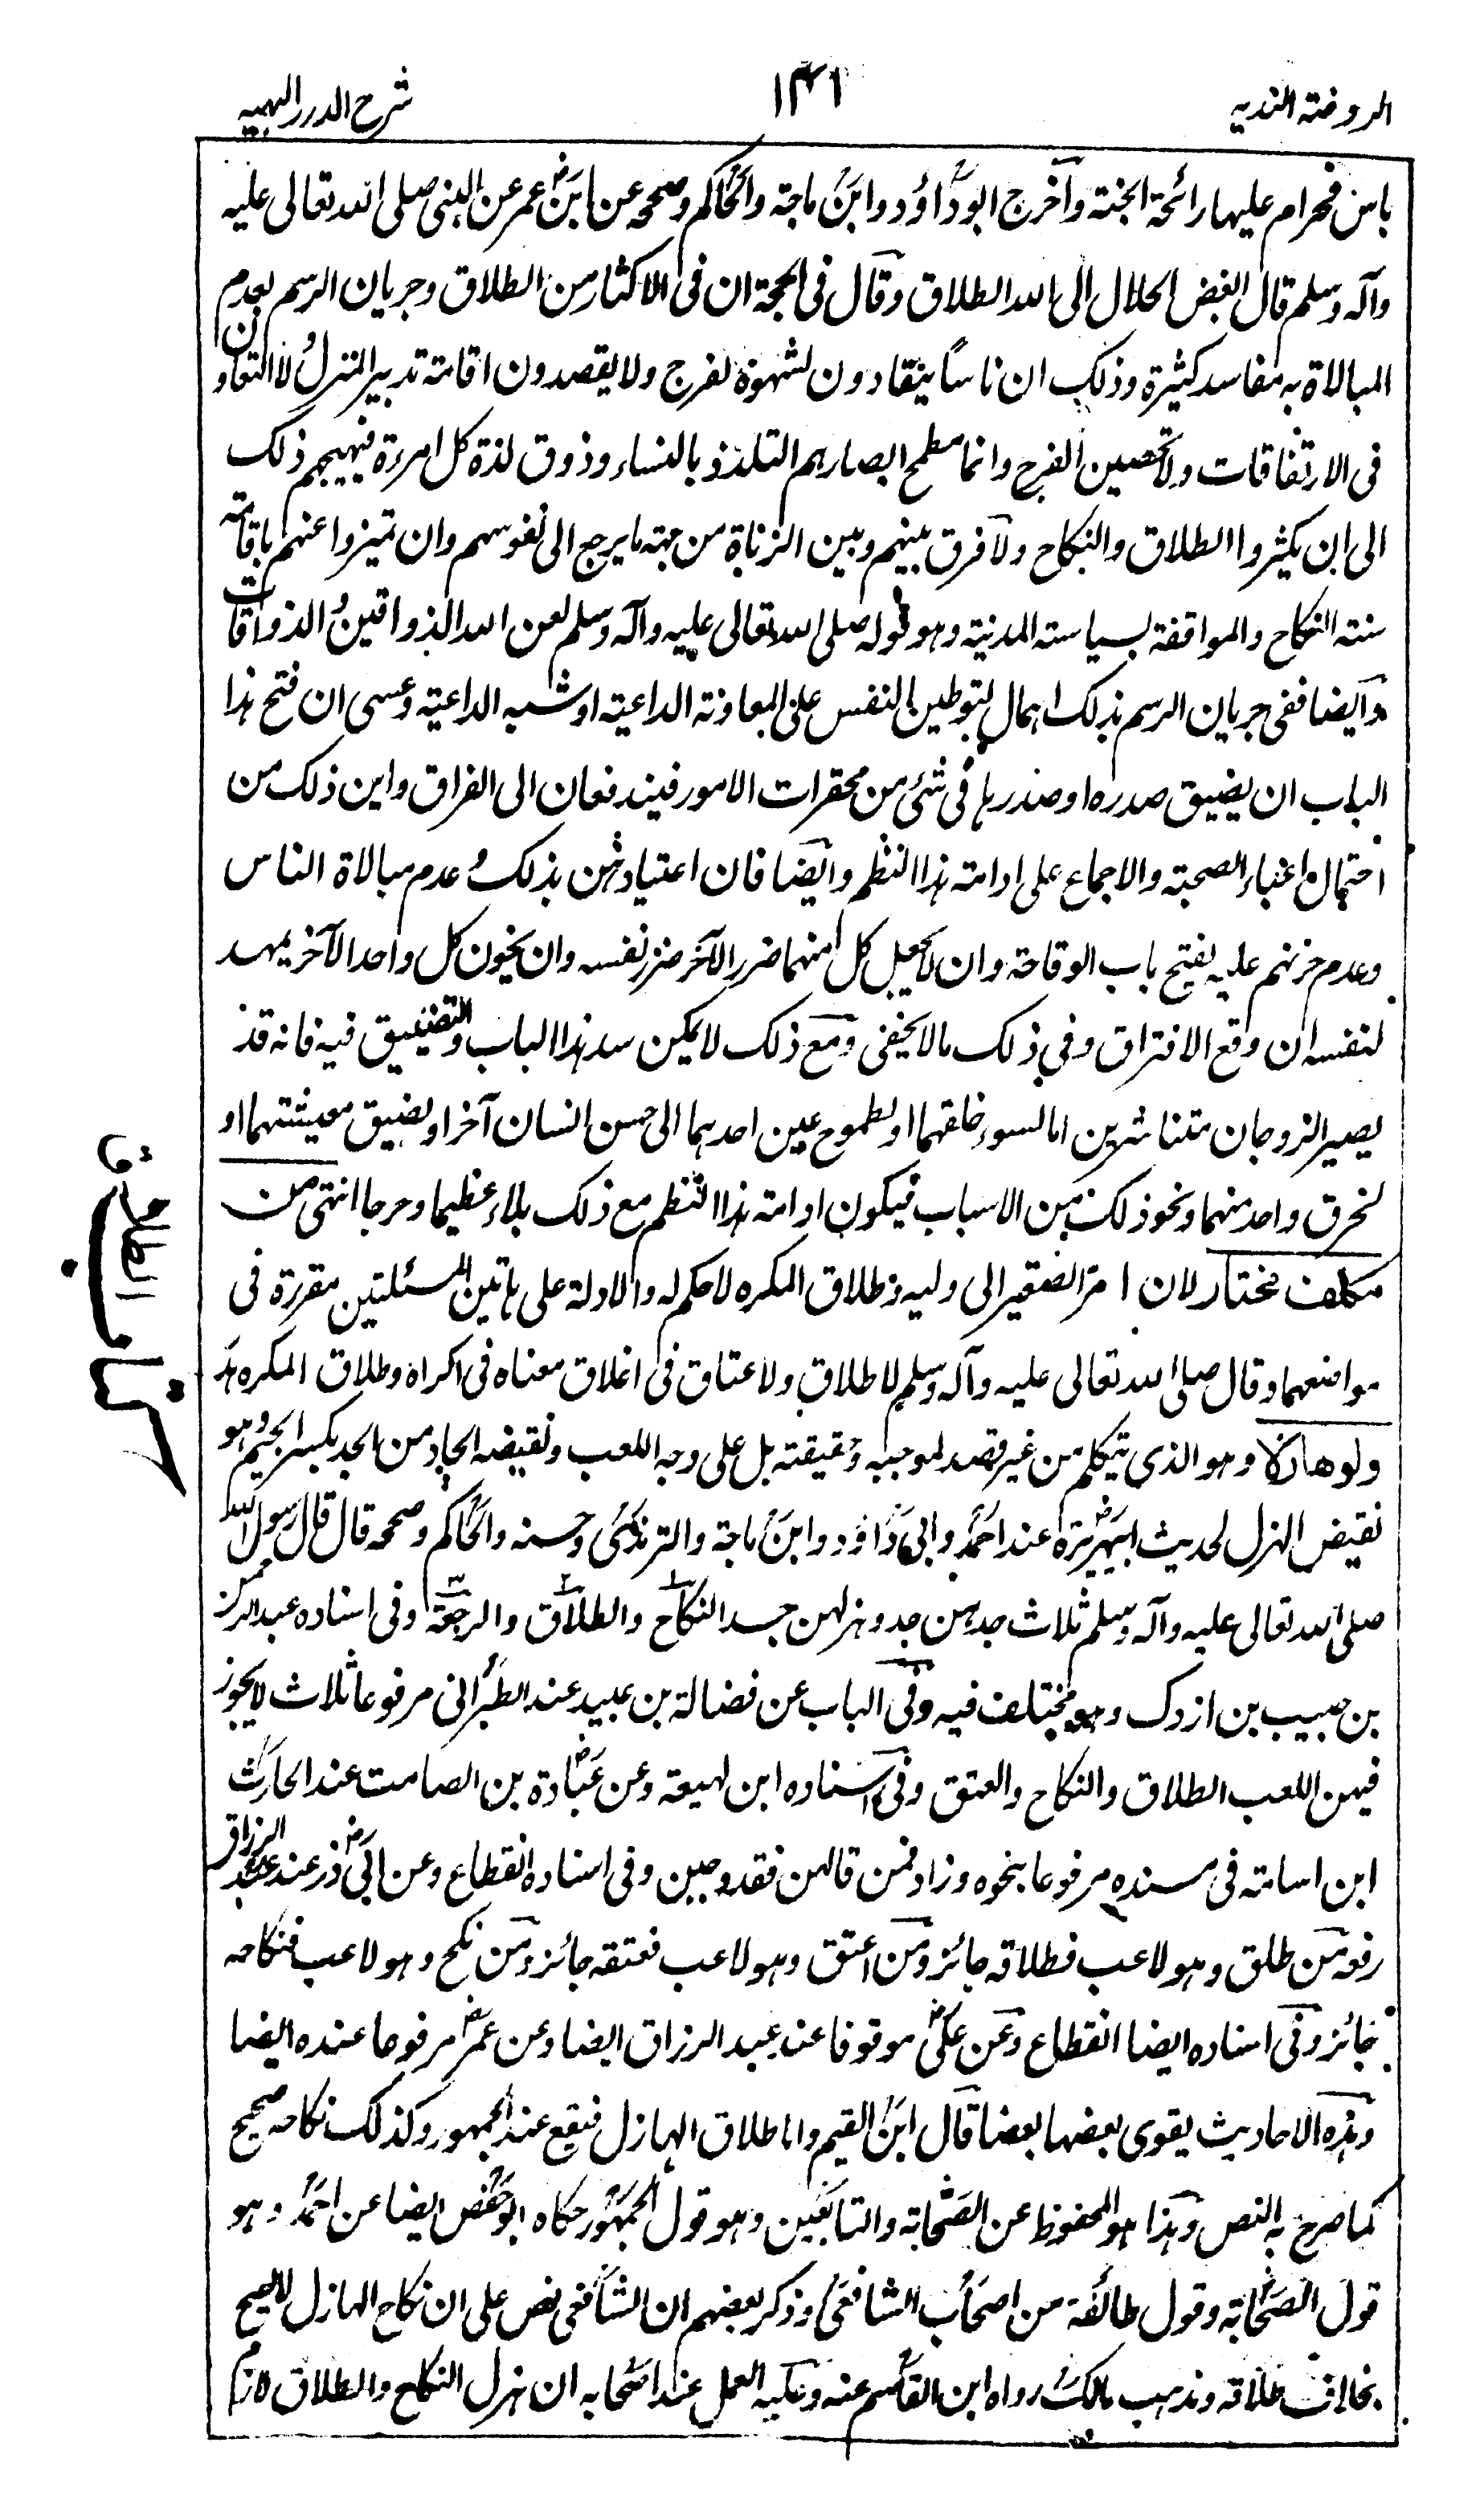 الروضة الندية
١٣١
شرح الدرر البهية
باس فحرام عليها رائحة الجنة وأخرج ابو داؤد وابن ماجة والحاكم وصححه عن ابن عمر عن النبي صلى الله تعالى عليه
وآله وسلم قال ابغض الحلال الى الله الطلاق وقال فى الحجة ان فى الاكثار من الطلاق وجريان الرسم بعدم
المبالاة به مفاسد كثيرة وذلك ان ناسًا ينقادون لشهوة الفرج ولا يقصدون اقامة تدبير المنزل ولا التعاون
فى الارتفاقات ولا تحصين الفرج وانما مطمح ابصارهم التلذذ بالنساء وذوق لذة كل امرءة فيهيجهم ذلك
الى ان يكثروا الطلاق والنكاح ولا فرق بينهم وبين الزناة من جهة ما يرجع الى نفوسهم وان تميزوا عنهم باقامة
سنة النكاح والموافقة لسياسة المدنية وهو قوله صلى الله تعالى عليه وآله وسلم لعن الله الذواقين والذواقات
وأيضا ففى جريان الرسم بذلك اهمال لتوطين النفس على المعاونة الداعية او شبه الداعية وعسى ان فتح هذا
الباب ان يضيق صدره او صدرها فى شئ من محقرات الامور فيندفعان الى الفراق واين ذلك من
احتمال اعباء الصحبة والاجماع على ادامة هذا النظم وأيضا فان اعتيادهن بذلك وعدم مبالاة الناس
وعدم حزنهم عليه يفتح باب الوقاحة وان لا يجعل كل منهما ضرر الآخر ضرر نفسه وان يخون كل واحد الآخر يمهد
لنفسه ان وقع الافتراق وفي ذلك ما لا يخفى ومع ذلك لا يمكن سد هذا الباب والتضييق فيه فانه قد
يصير الزوجان متناشزين اما لسوء خلقهما او لطموح عين احدهما الى حسن انسان آخر او لضيق معيشتهما او
لخرق واحد منهما ونحو ذلك من الاسباب فيكون ادامة هذا النظم مع ذلك بلاء عظيما وحرجا انتهى من
مكلف مختار لان امر الصغير الى وليه وطلاق المكره لا حكم له والادلة على هاتين المسئلتين مقررة فى
مواضعهما وقال صلى الله تعالى عليه وآله وسلم لا طلاق ولا عتاق فى اغلاق معناه فى اكراه وطلاق المكره هدر
ولو هازلا وهو الذى يتكلم من غير قصد لموجبه وحقيقته بل على وجه اللعب ونقيضه الجاد من الجد بكسر الجيم وهو
نقيض الهزل لحديث ابى هريرة عند احمد وابى داؤد وابن ماجة والترمذى وحسنه والحاكم وصححه قال قال رسول الله
صلى الله تعالى عليه وآله وسلم ثلاث جدهن جد وهزلهن جد النكاح والطلاق والرجعة وفى اسناده عبد الرحمن
بن حبيب بن اردك وهو مختلف فيه وفى الباب عن فضالة بن عبيد عند الطبرانى مرفوعا ثلاث لا يجوز
فيهن اللعب الطلاق والنكاح والعتق وفى اسناده ابن لهيعة وعن عبادة بن الصامت عند الحارث
ابن اسامة فى مسنده مرفوعا بنحوه وزاد فمن قالهن فقد وجبن وفى اسناده انقطاع وعن ابى ذر عند عبد الرزاق
رفعه من طلق وهو لاعب فطلاقه جائز ومن اعتق وهو لاعب فعتقه جائز ومن نكح وهو لاعب فنكاحه
جائز وفى اسناده ايضا انقطاع وعن على موقوفا عند عبد الرزاق ايضا وعن عمر مرفوعا عنده ايضا
وهذه الاحاديث يقوى بعضها بعضا قال ابن القيم واما طلاق الهازل فيقع عند الجمهور وكذلك نكاحه صحيح
كما صرح به النص وهذا هو المحفوظ عن الصحابة والتابعين وهو قول الجمهور حكاه ابو حفص ايضا عن احمد وهو
قول الصحابة وقول طائفة من اصحاب الشافعى وذكر بعضهم ان الشافعى نص على ان نكاح الهازل لا يصح
بخلاف طلاقه ومذهب مالك رواه ابن القاسم عنه وعليه العمل عند اصحابه ان هزل النكاح والطلاق لازم